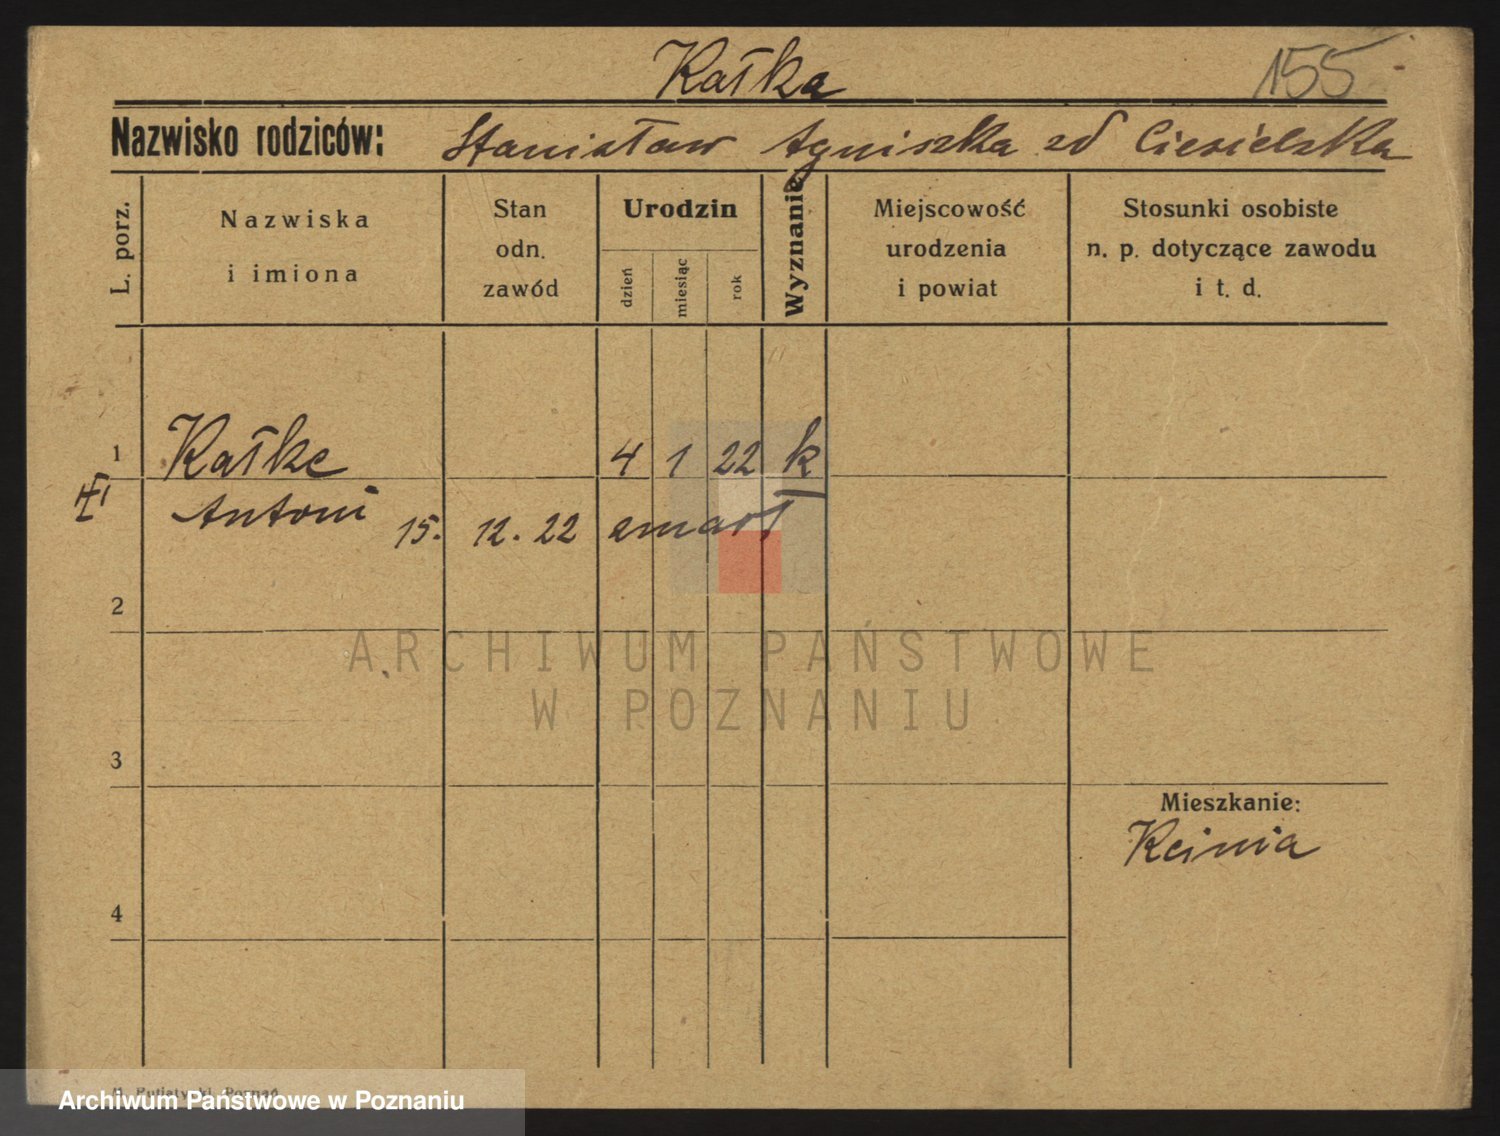 Kałka 155
Nazwisko rodziców: Stanisław Agniszka zd Ciesielzka
L. porz.
Nazwiska
i imiona
Stan
odn.
zawód
Urodzin
dzień
miesiąc
rok
Wyznanie
Miejscowość
urodzenia
i powiat
Stosunki osobiste
n. p. dotyczące zawodu
i t. d.
1 Kałke 4 1 22 k
Antoni
15. 12. 22 zmarł
2
3
4
Mieszkanie:
Kcinia
ARCHIWUM PAŃSTWOWE
W POZNANIU
Archiwum Państwowe w Poznaniu